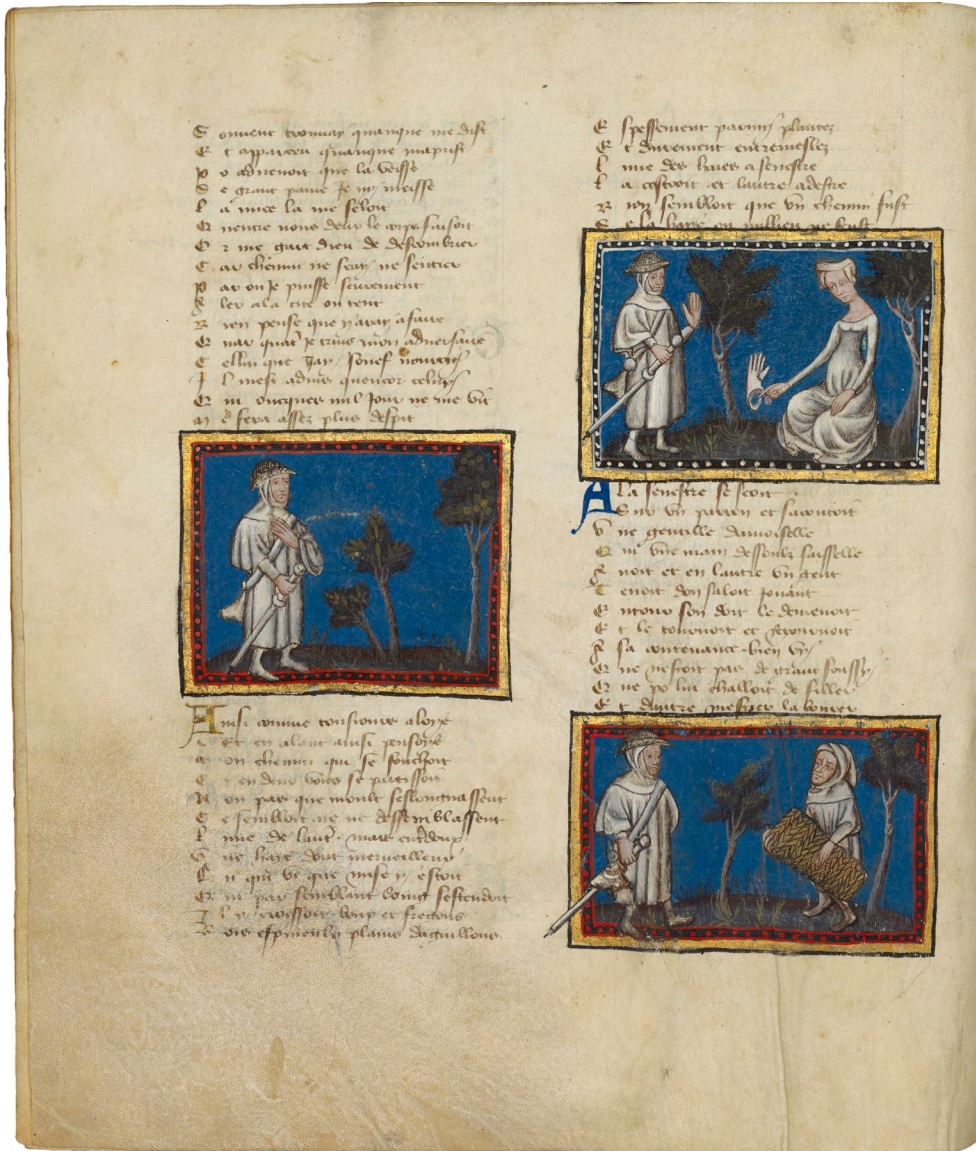 S ouuent tournay quanque me dist
E t apparceu quanque maprist
P o aduenoit que la veisse
S e grant paine Je ny meisse
L a nuee la me seloit
Q uentre nous deux le corps faisoit
O r me gart dieu de desconbrier
C ar chemin ne scay ne sentier
P ar ou Je puisse seurement
A ler a la cite ou tent
B ien pense que y aray a faire
Q uar quant Je truis mon aduersaire
C ellui que Jay souef nourry
I l mest aduis quencor celuy
Q ui oncques nul Jour ne me vit
M e fera assez plus despit
Ainsi comme tousiours aloye
E t en alant ainsi pensoye
on chemin qui se fourchoit
E t en deux voies se partissoit
N on pas que moult seslongnassent
C e sembloit ne ne dessemblassent
L une de lautre mais entredeux
V ne haye dont merueilleux
F u qui vi que mise y estoit
Q ui par semblant loing sestendoit
I l y croissoit houx et frecons
B ois espineux plains daguillons
E spessement parmy plantez
E t durement entremeslez
L une des haies a senestre
L a costoit et lautre a destre
B ien sembloit que vn chemin fust
S e la haye ou millieu ne fust
A la senestre se seoit
S ur vn perron et sacoutoit
V ne gentille damoiselle
Q ui vne main dessoubz saisselle
A uoit et en lautre vn gant
T enoit don saloit Jouant
E ntour son doit le demenoit
E t le tournoit et retournoit
A sa contenance bien vy
Q ue nestoit pas de grant soussy
Q ue po lui challoit de filler
E t dautre mestier labourer